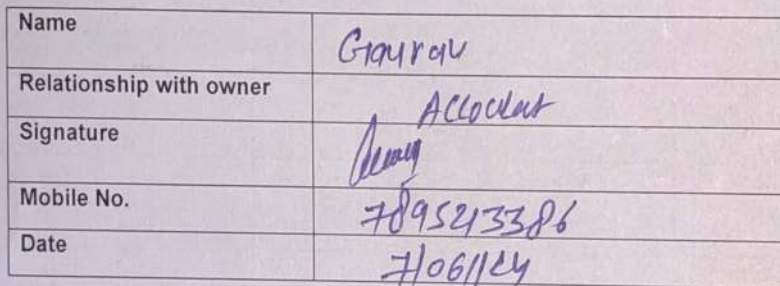 Name Gaurav
Relationship with owner
Signature
Mobile No. 7895213386
Date